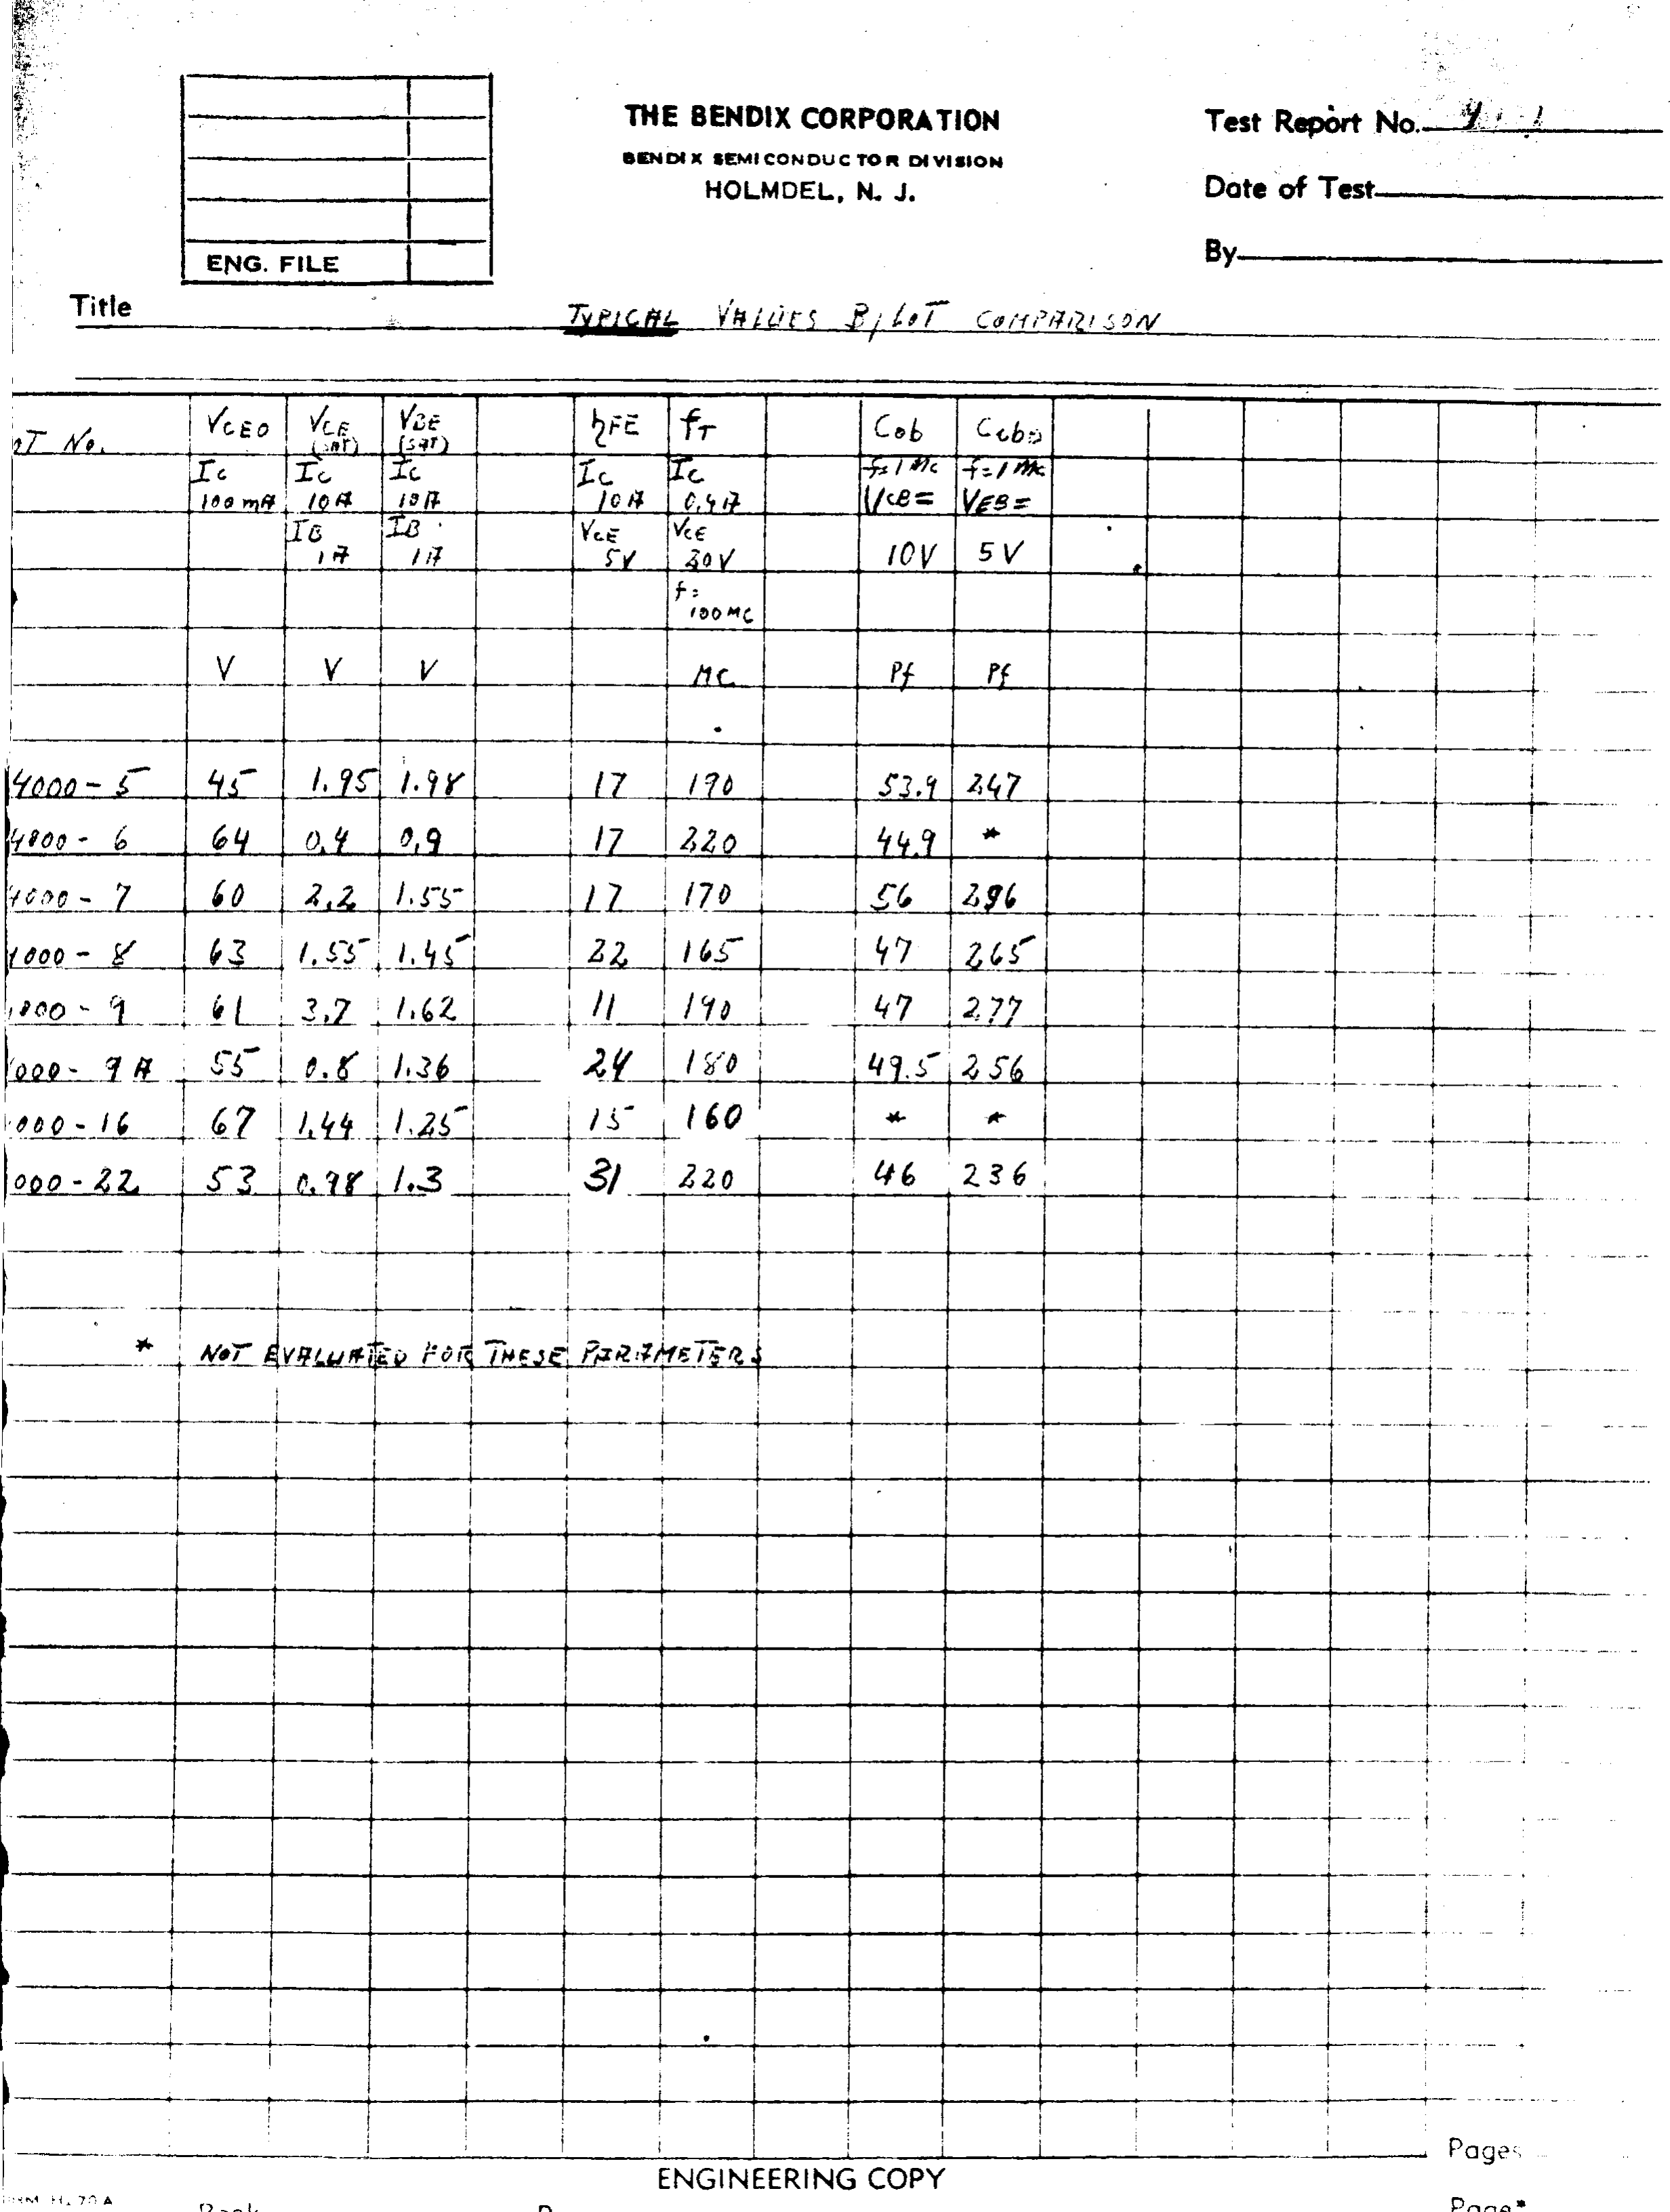 THE BENDIX CORPORATION
BENDIX SEMICONDUCTOR DIVISION
HOLMDEL, N. J.
ENG. FILE
Test Report No.
Date of Test
By
Title TYPICAL VALUES B/LOT COMPARISON
OT No. VCEO VCE (SAT) VBE (SAT) hFE fT Cob
Ic Ic Ic Ic Ic f=1Mc f=1Mc
100mA 10A 10A 10A 0.4A VCB= VEB=
IB IB VCE VCE
1A 1A 5V 30V 10V 5V
f=
100MC
V V V MC Pf Pf
4000-5 45 1.95 1.98 17 190 53.9 247
4000-6 64 0.4 0.9 17 220 44.9 *
4000-7 60 2.2 1.55 17 170 56 296
000-8 63 1.55 1.45 22 165 47 265
000-9 61 3.7 1.62 11 190 47 277
000-9A 55 0.8 1.36 24 180 49.5 256
000-16 67 1.44 1.25 15 160 * *
000-22 53 0.98 1.3 31 220 46 236
* NOT EVALUATED FOR THESE PARAMETERS
Pages
ENGINEERING COPY